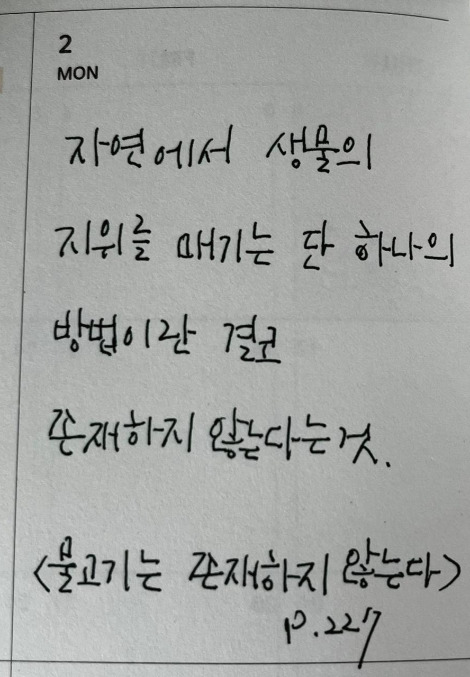 2
MON
자연에서 생물의
지위를 매기는 단 하나의
방법이란 결코
존재하지 않는다는것.
<물고기는 존재하지 않는다>
p.227